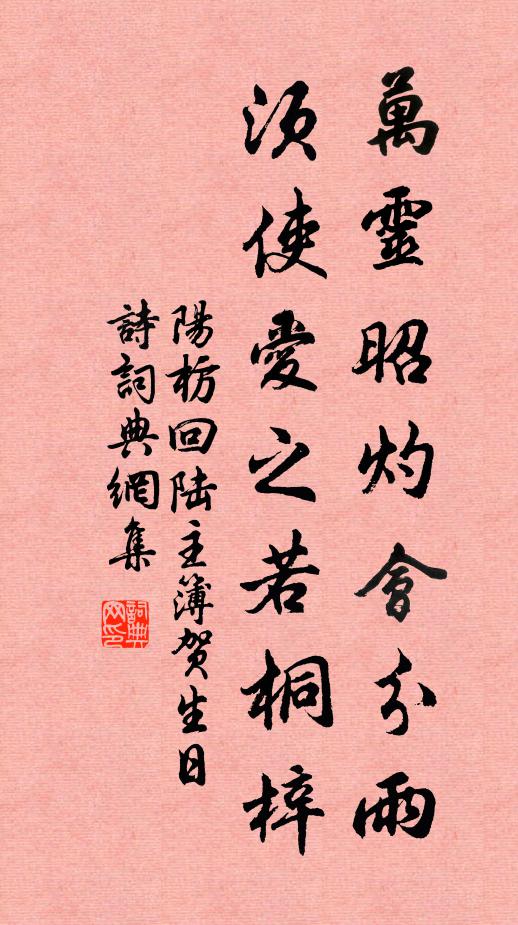 萬靈昭灼會分兩
須使愛之若桐梓
陽枋回陆主簿贺生日
詩詞典網集
詞典网印